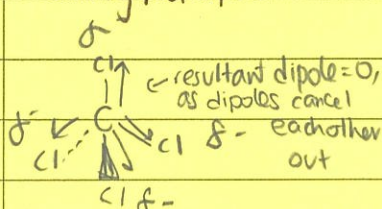 δ-
Cl
resultant dipole=0,
as dipoles cancel
eachother
out
δ-
C
Cl
Cl
δ-
Cl
δ-